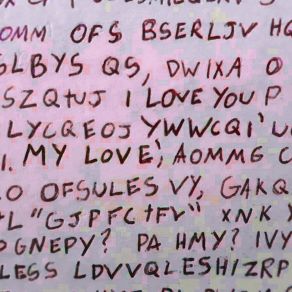 OMM OFS BSERLJV HQ
SLBYS QS, DWIXA O
SZQtUJ I LOVE YOU P
LYCQEOJ YWWCQI'U
I. MY LOVE', AOMMG C
O OFSULES VY, GAKQ
tL "GJPFCtFV" XNK Y
OGNEPY? PA HMY? IVY
LESS LDVVQLESH/ZRP